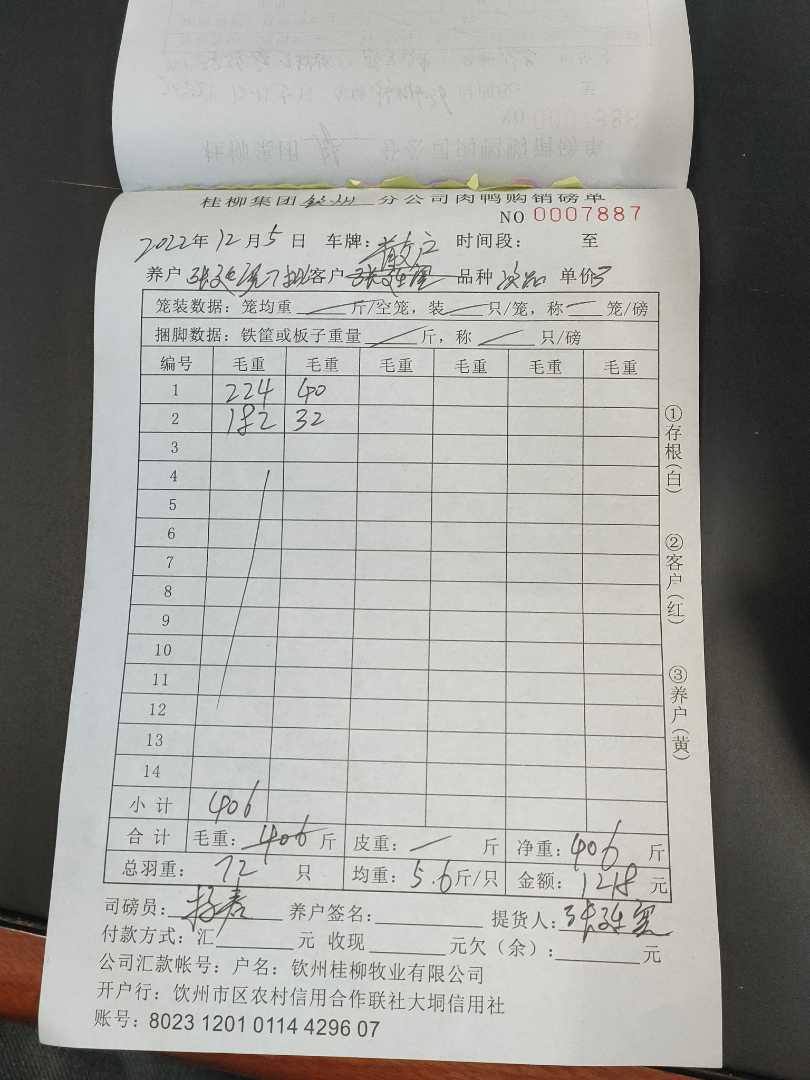 桂柳集团钦州分公司肉鸭购销磅单
NO 0007887
2022年12月5日 车牌:散户 时间段: 至
养户 客户 品种 次品 单价3
笼装数据: 笼均重 斤/空笼, 装 只/笼, 称 笼/磅
捆脚数据: 铁筐或板子重量 斤, 称 只/磅
编号 毛重 毛重 毛重 毛重 毛重 毛重
1 224 40
2 182 32
3
4
5
6
7
8
9
10
11
12
13
14
小计 406
合计 毛重: 406 斤 皮重: 斤 净重: 406 斤
总羽重: 72 只 均重: 5.6斤/只 金额: 1218 元
司磅员: 养户签名: 提货人:
付款方式: 汇 元 收现 元欠(余): 元
公司汇款帐号: 户名: 钦州桂柳牧业有限公司
开户行: 钦州市区农村信用合作联社大垌信用社
账号: 8023 1201 0114 4296 07
①存根(白)
②客户(红)
③养户(黄)